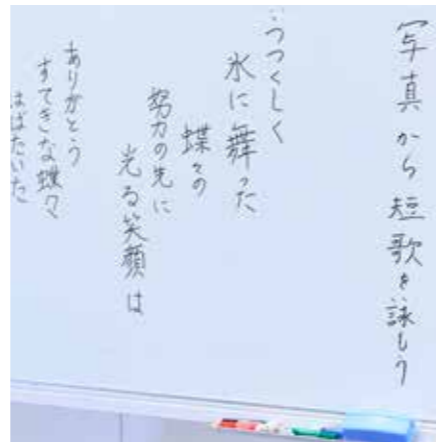 写真から短歌を詠もう
うつくしく
氷に舞った
蝶々の
努力の先に
光る笑顔は
ありがとう
すてきな蝶々
はばたいた